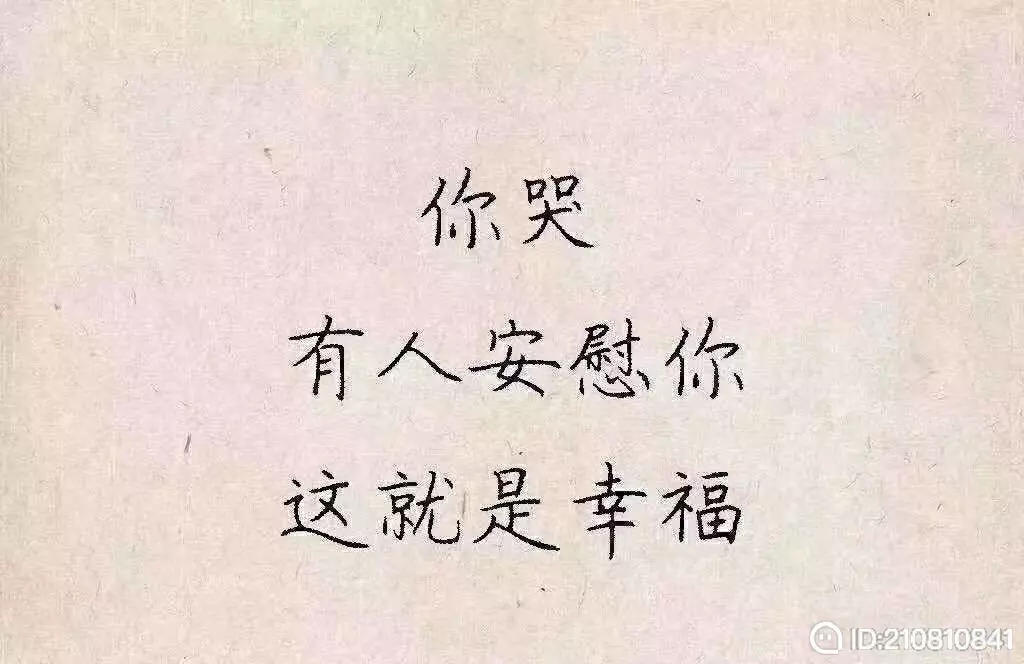 你哭
有人安慰你
这就是幸福
ID:210810841